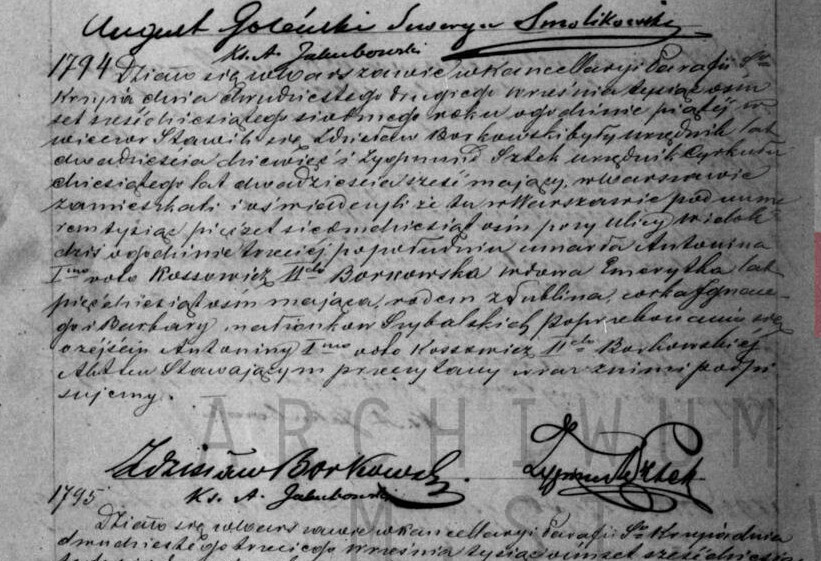 August Goleński Seweryn Smolikowski
Ks. A. Jakubowski
1794 Działo się w Warszawie w kancellaryi Parafii Sgo
Krzyża dnia dwudziestego drugiego września tysiąc ośm
set sześćdziesiątego siódmego roku o godzinie piątej w
wieczor Stawili się Zdzisław Borkowski były urzędnik lat
dwadzieścia dziewięć i Zygmund Sztek urzędnik Cyrkułu
dziesiątego lat dwadzieścia sześć mający, w Warszawie
zamieszkali i oświadczyli że tu w Warszawie pod nume
rem tysiąc pięćset siedmdziesiąt ośm przy ulicy Widok
dziś o godzinie trzeciej popołudniu umarła Antonina
Imo voto Kossowicz IIdo Borkowska wdowa Emerytka lat
pięćdziesiąt ośm mająca, rodem z Lublina, córka Ignace-
go i Barbary małżonków Po przekonaniu się
o zejściu Antoniny Imo voto Kossowicz IIdo Borkowskiej
Akt ten Stawającym przeczytany wraz z nimi podpi
sujemy.
ARCHIWUM
Zdzisław Borkowski Zygmund Sztek
Ks. A. Jakubowski
1795
Działo się w Warszawie w kancellaryi Parafii Sgo Krzyża dnia
dwudziestego trzeciego września tysiąc ośmset sześćdziesią